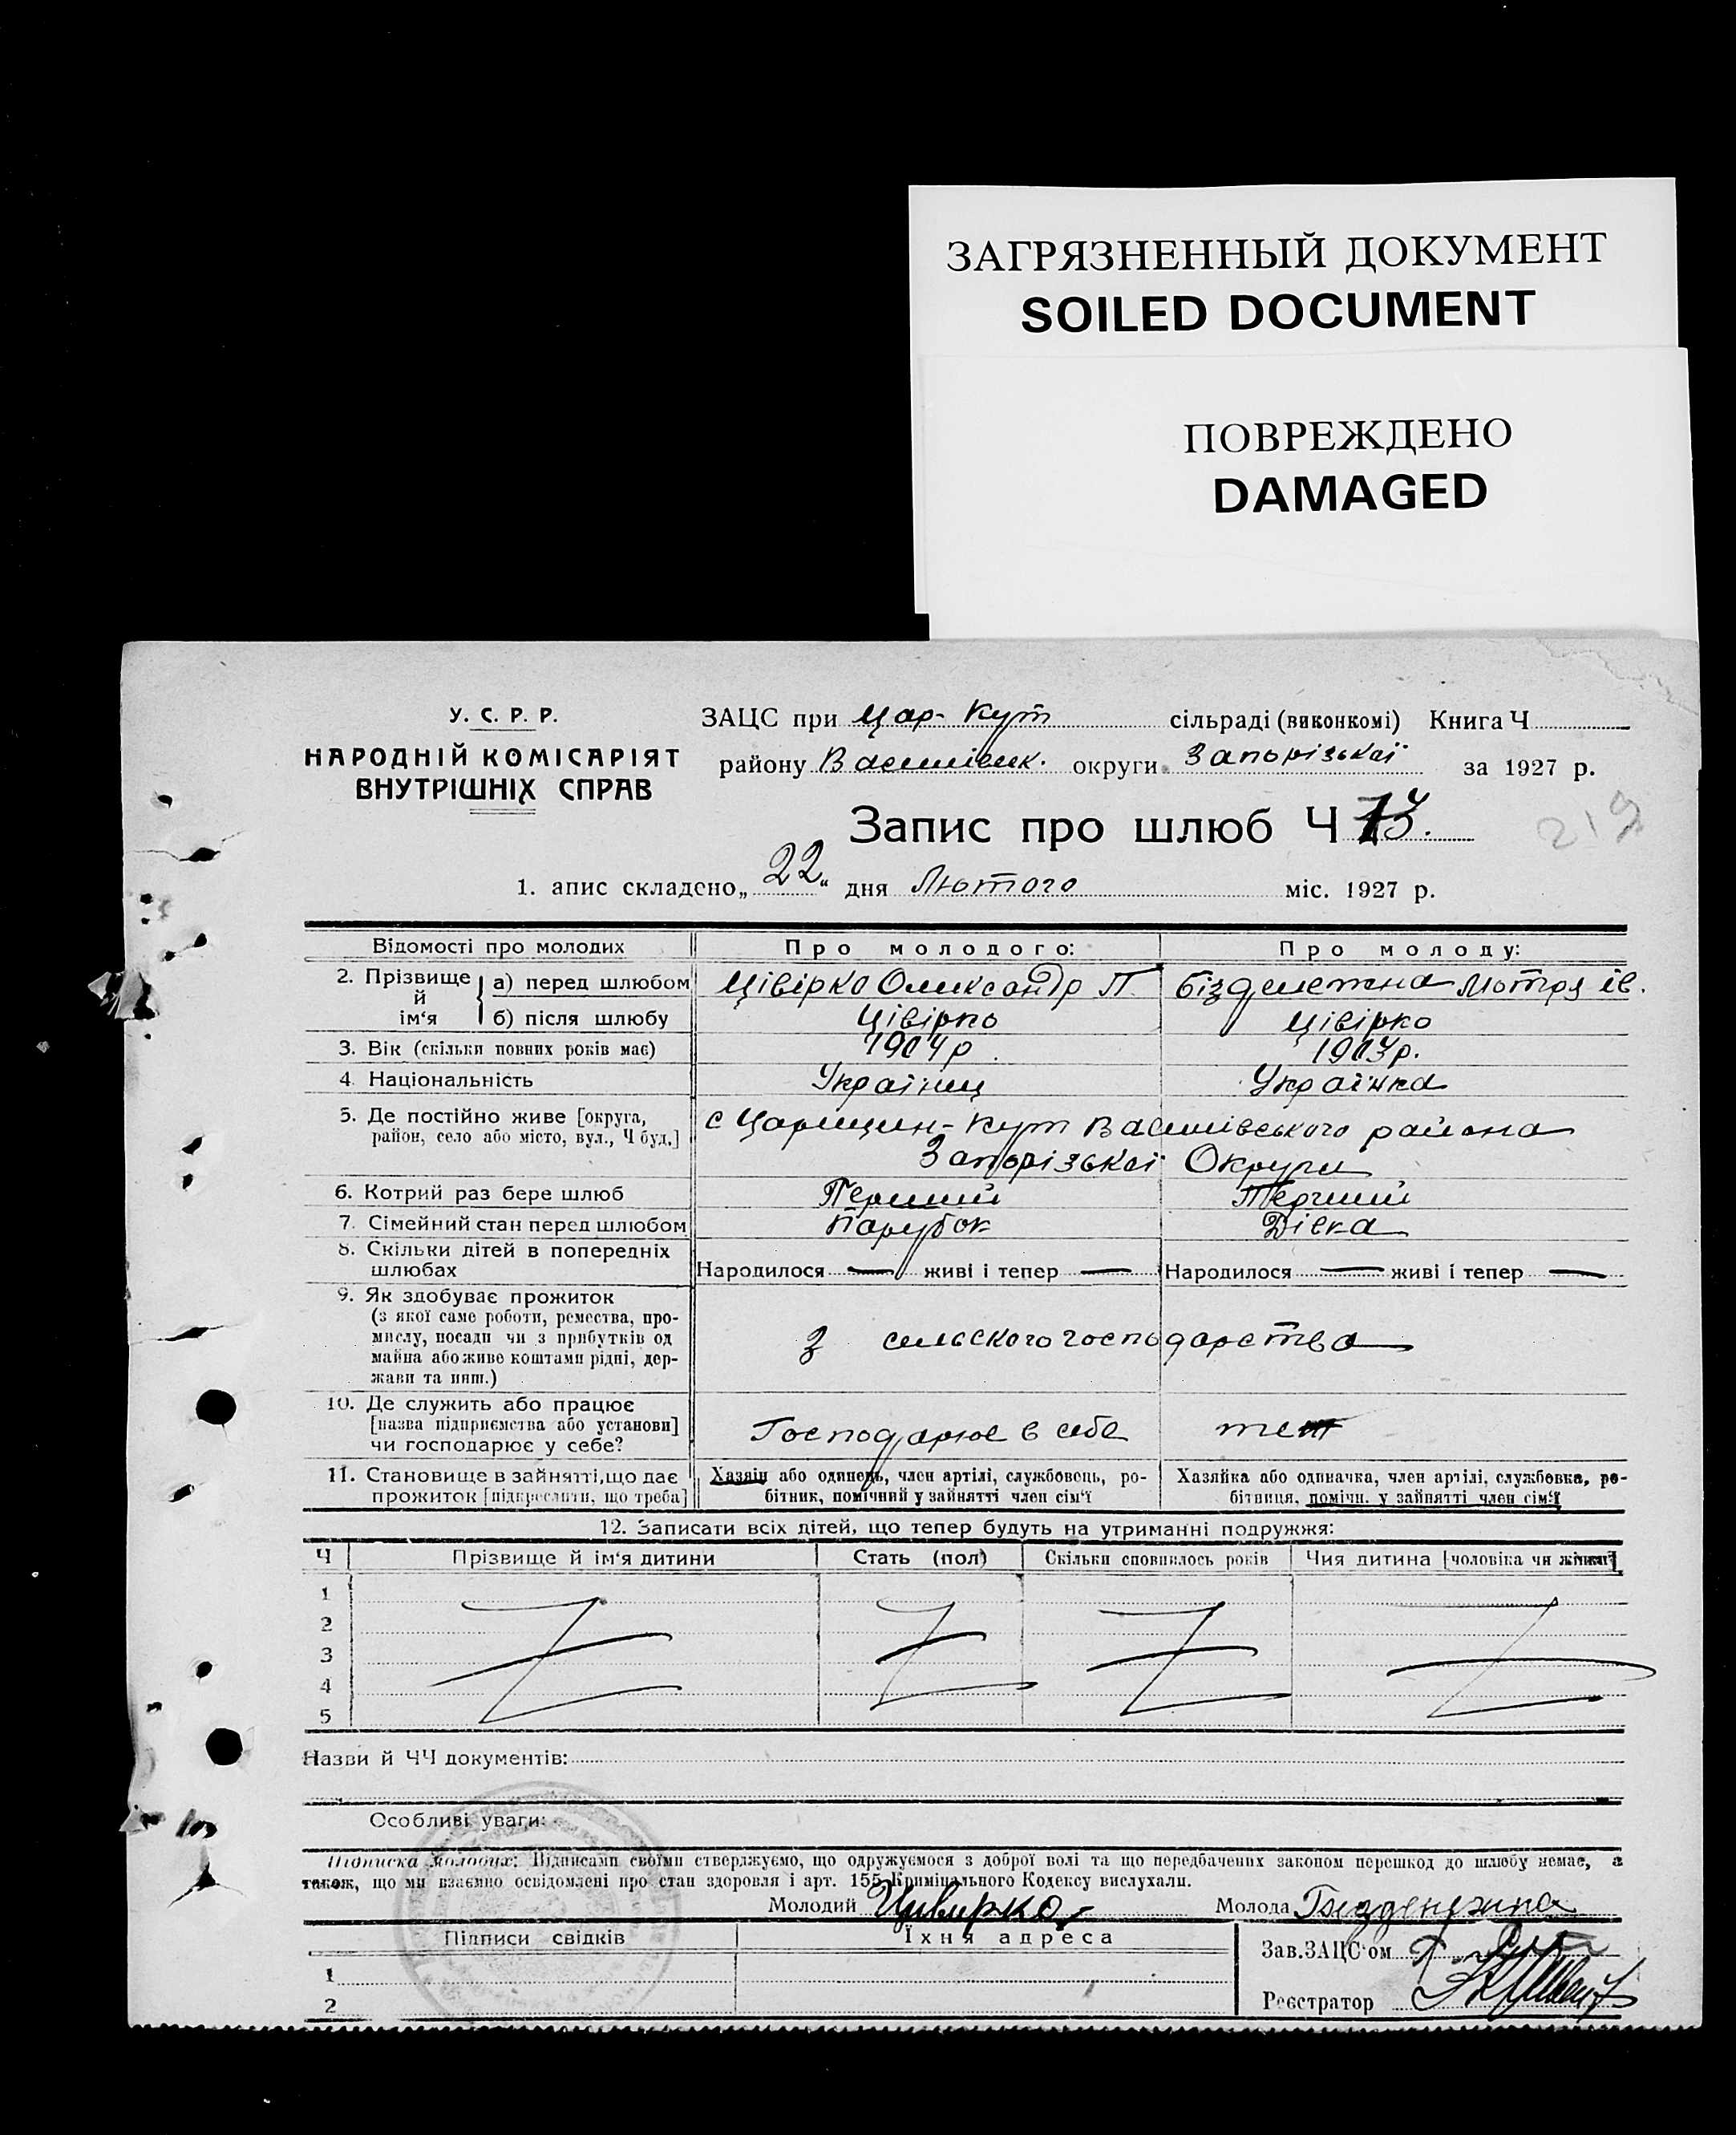 ЗАГРЯЗНЕННЫЙ ДОКУМЕНТ
SOILED DOCUMENT
ПОВРЕЖДЕНО
DAMAGED
У. С. Р. Р.
НАРОДНІЙ КОМІСАРІЯТ
ВНУТРІШНІХ СПРАВ
ЗАЦС при Цар- Кут сільраді (виконкомі) Книга Ч
району округи Запорізької за 1927 р.
Запис про шлюб Ч 13.
219
1. апис складено „22“ дня Лютого міс. 1927 р.
Відомості про молодих Про молодого: Про молоду:
2. Прізвище й ім‘я а) перед шлюбом Цівірко Олександр П. Мотря ів.
б) після шлюбу Цівірко Цівірко
3. Вік (скільки повних років має)
4. Національність Українец Українка
5. Де постійно живе [округа, с Царицин-Кут Василівського района
район, село або місто, вул., Ч буд.]
Запорізької Округи
6. Котрий раз бере шлюб Перший Перший
7. Сімейний стан перед шлюбом Парубок Дівка
8. Скільки дітей в попередніх
шлюбах Народилося — живі і тепер — Народилося — живі і тепер —
9. Як здобуває прожиток
(з якої саме роботи, ремества, про-
мислу, посади чи з прибутків од з сельского господарства
майна або живе коштами рідні, дер-
жави та инш.)
10. Де служить або працює
[назва підприємства або установи] Господарює в себе теж
чи господарює у себе?
11. Становище в зайнятті, що дає Хазяін або одинець, член артілі, службовець, ро- Хазяйка або одиначка, член артілі, службовка, ро-
прожиток [підкреслити, що треба] бітник, помічний у зайнятті член сім‘ї бітниця, помічн. у зайнятті член сім‘ї
12. Записати всіх дітей, що тепер будуть на утриманні подружжя:
Ч Прізвище й ім‘я дитини Стать (пол) Скільки сповнилось років Чия дитина [чоловіка чи жінки]
1
2
3
4
5
Назви й ЧЧ документів:
Особливі уваги:
Підписка молодих: Підписами своїми стверджуємо, що одружуємося з доброї волі та що передбачених законом перешкод до шлюбу немає, а
також, що ми взаємно освідомлені про стан здоровля і арт. 155 Кримінального Кодексу вислухали.
Молодий Цивирко Молода
Підписи свідків Їхня адреса Зав. ЗАЦС‘ом
1
2 Реєстратор